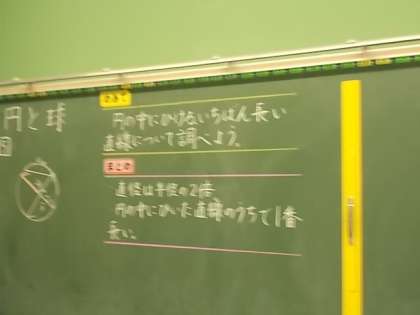 円と球
めあて
円の中にかけるいちばん長い
直線について調べよう。
まとめ
直径は半径の2倍
円の中にひいた直線のうちで1番
長い。